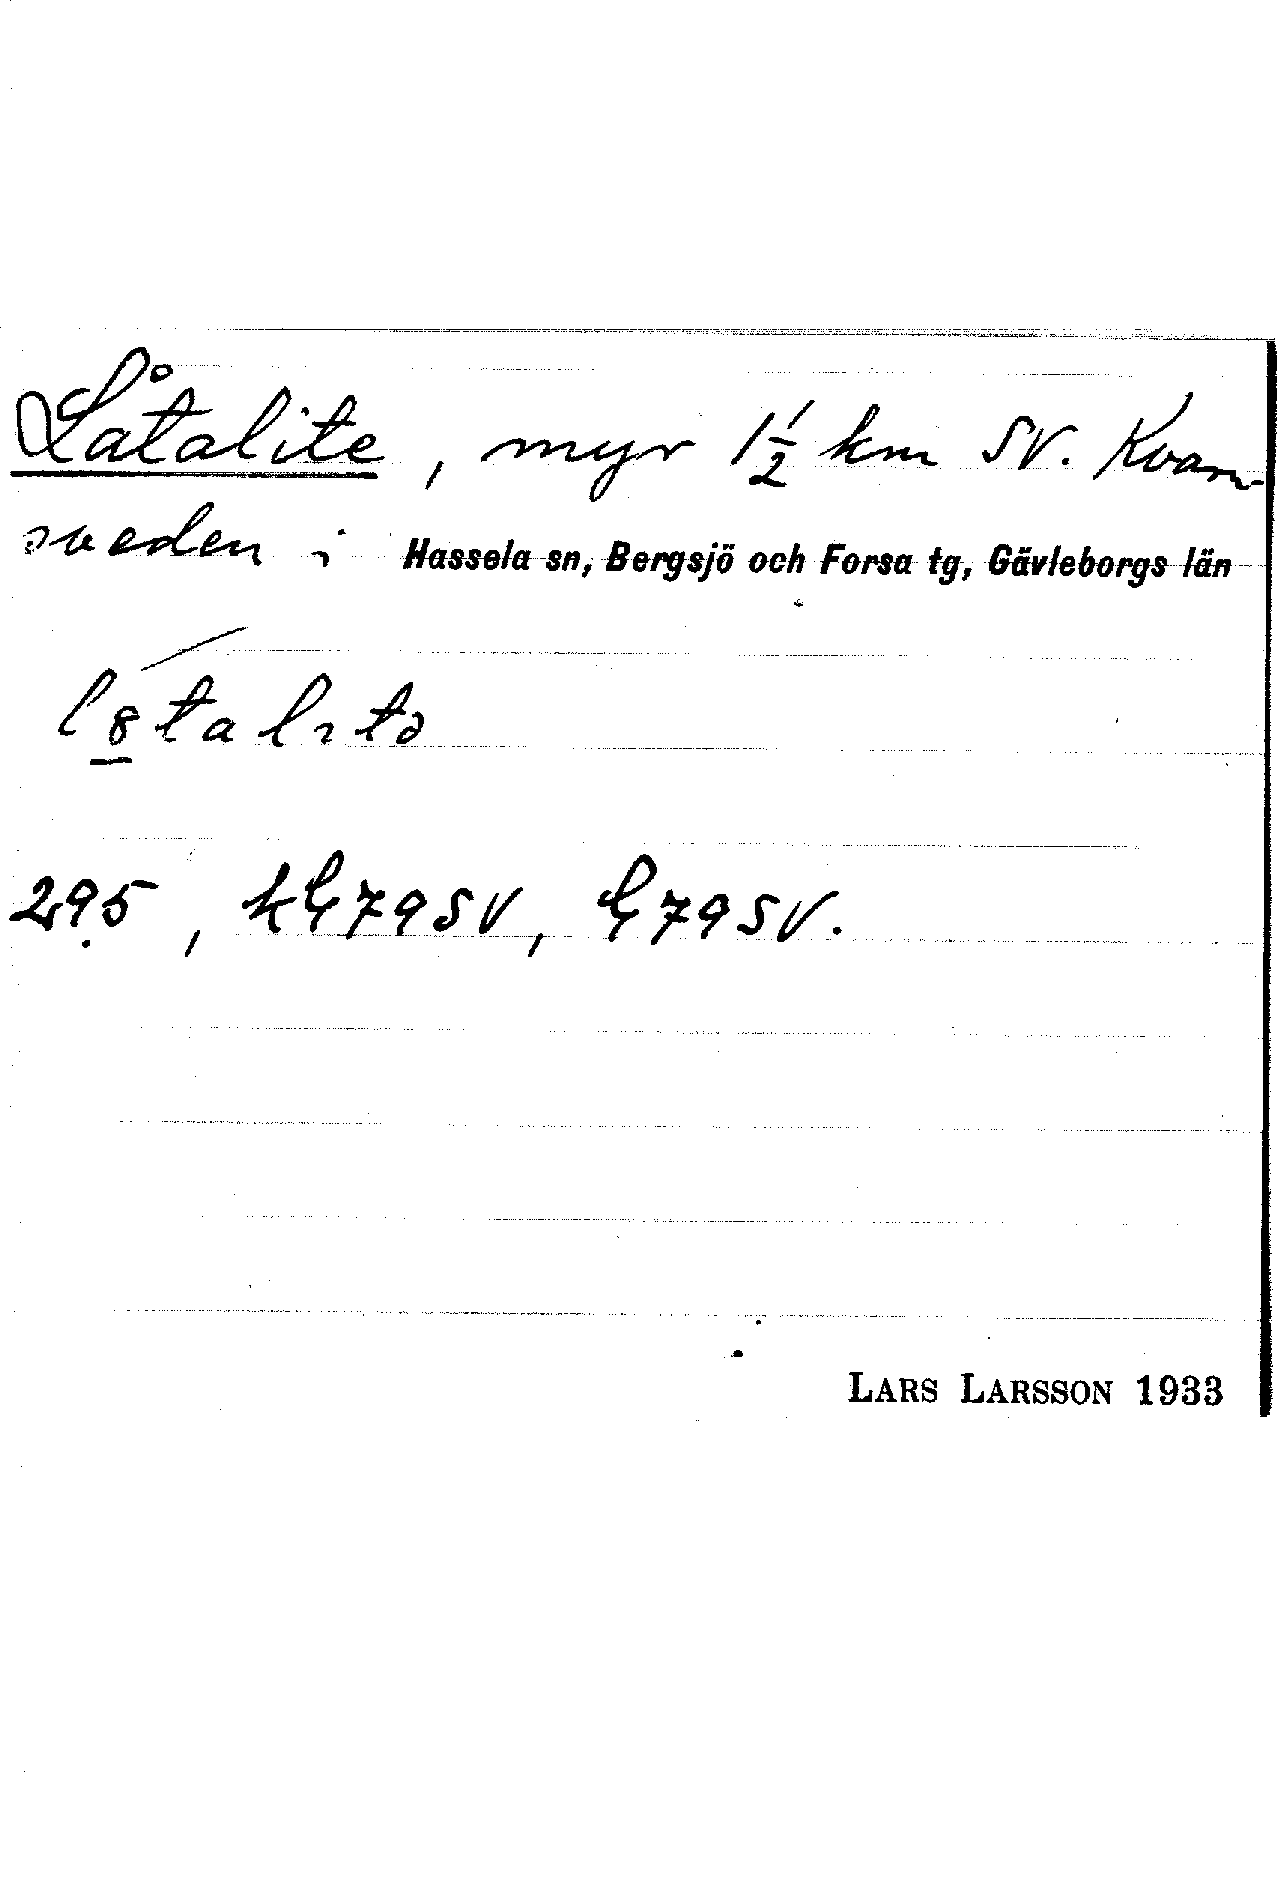 Låtalite, myr 1 1/2 km SV. Kvarn-
sveden i Hassela sn, Bergsjö och Forsa tg, Gävleborgs län
295, kG79SV, G79SV.
LARS LARSSON 1933